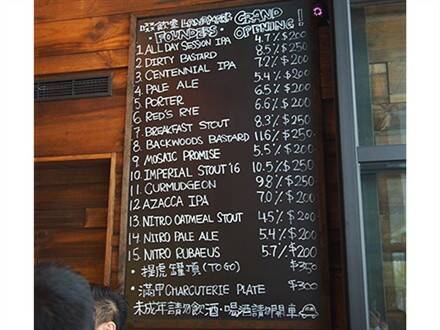 啜飲室 LANDMARK GRAND
• FOUNDERS • OPENING!
1. ALL DAY SESSION IPA 4.7% $200
2. DIRTY BASTARD 8.5% $250
3. CENTENNIAL IPA 7.2% $200
4. PALE ALE 5.4% $200
5. PORTER 6.5% $200
6. RED'S RYE 6.6% $200
7. BREAKFAST STOUT 8.3% $250
8. BACKWOODS BASTARD 11.6% $250
9. MOSAIC PROMISE 5.5% $200
10. IMPERIAL STOUT '16 10.5% $250
11. CURMUDGEON 9.8% $250
12 AZACCA IPA 7.0% $200
13 NITRO OATMEAL STOUT 4.5% $200
14 NITRO PALE ALE 5.4% $200
15 NITRO RUBAEUS 5.7% $200
• 提虎罐頂 (TO GO) $350
• 滿甲 CHARCUTERIE PLATE $300
未成年請勿飲酒・喝酒請勿開車